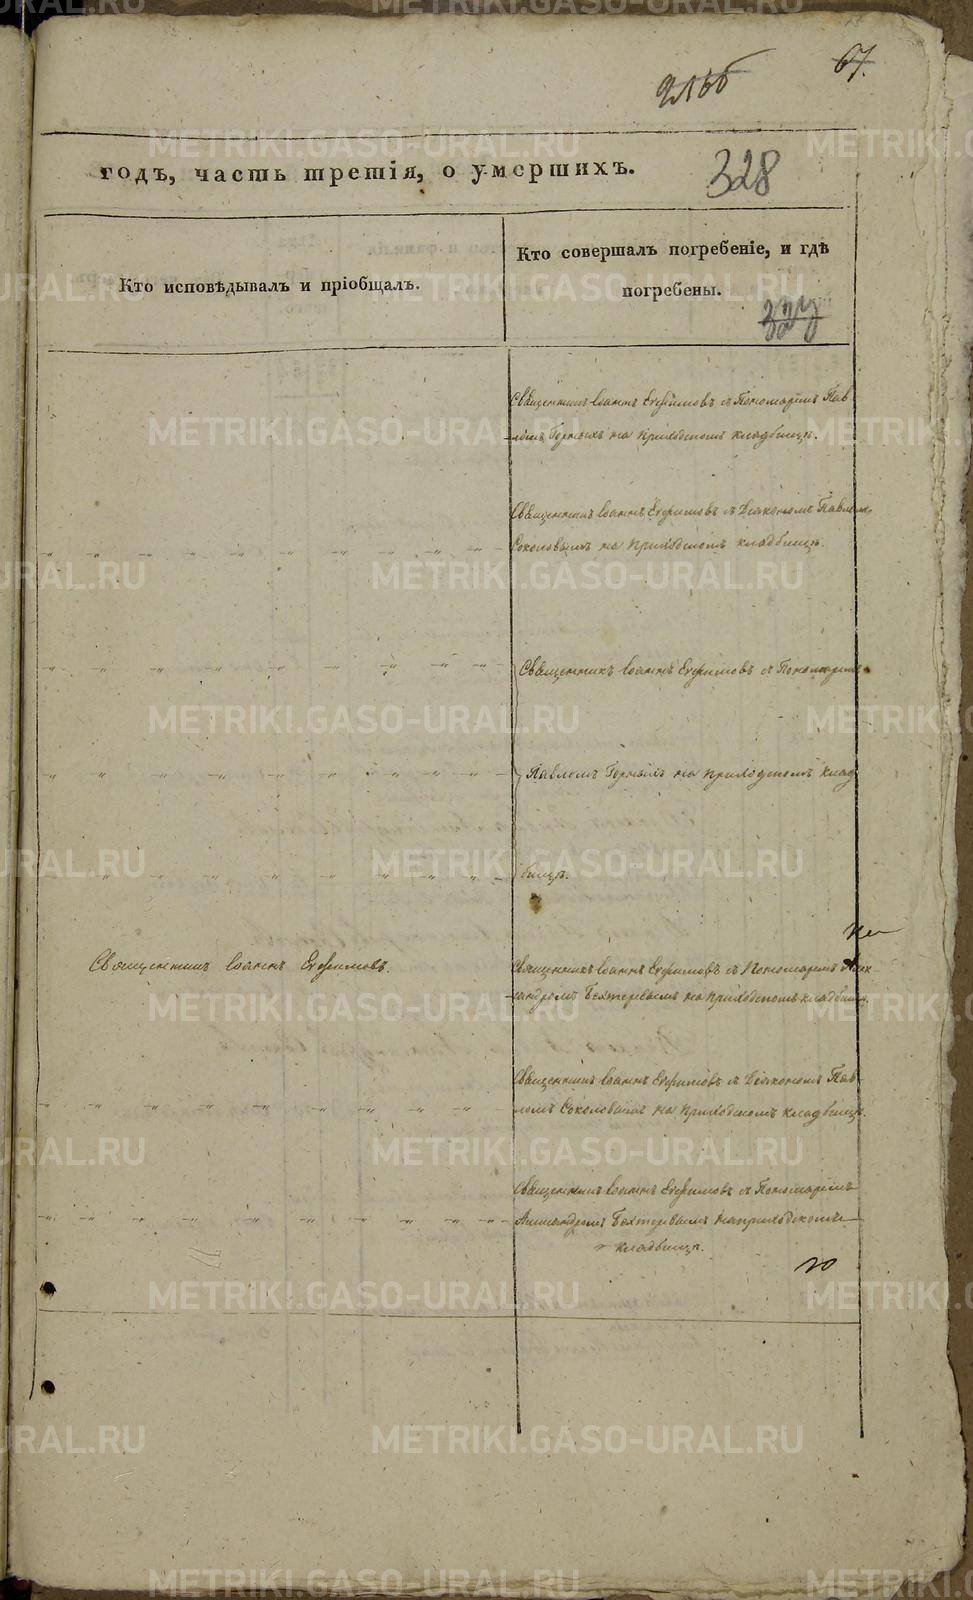 67.
2166
годъ, часть третія, о умершихъ.
328
Кто исповѣдывалъ и пріобщалъ.
Кто совершалъ погребеніе, и гдѣ
погребены.
Священникъ Іоаннъ Ефимовъ съ Пономаремъ Пав
ломъ Горныхъ на приходскомъ кладбищѣ.
Священникъ Іоаннъ Ефимовъ съ Діякономъ Павломъ
Соколовымъ на приходскомъ кладбищѣ.
Священникъ Іоаннъ Ефимовъ съ Пономаремъ
Павломъ Горныхъ на приходскомъ клад
бищѣ.
Священникъ Іоаннъ Ефимовъ.
Священникъ Іоаннъ Ефимовъ съ Пономаремъ Алек
сандромъ Бехтеревымъ на приходскомъ кладбищѣ.
Священникъ Іоаннъ Ефимовъ съ Діякономъ Пав
ломъ Соколовымъ на приходскомъ кладбищѣ.
Священникъ Іоаннъ Ефимовъ съ Пономаремъ
Александромъ Бехтеревымъ на приходскомъ
кладбищѣ.
METRIKI.GASO-URAL.RU